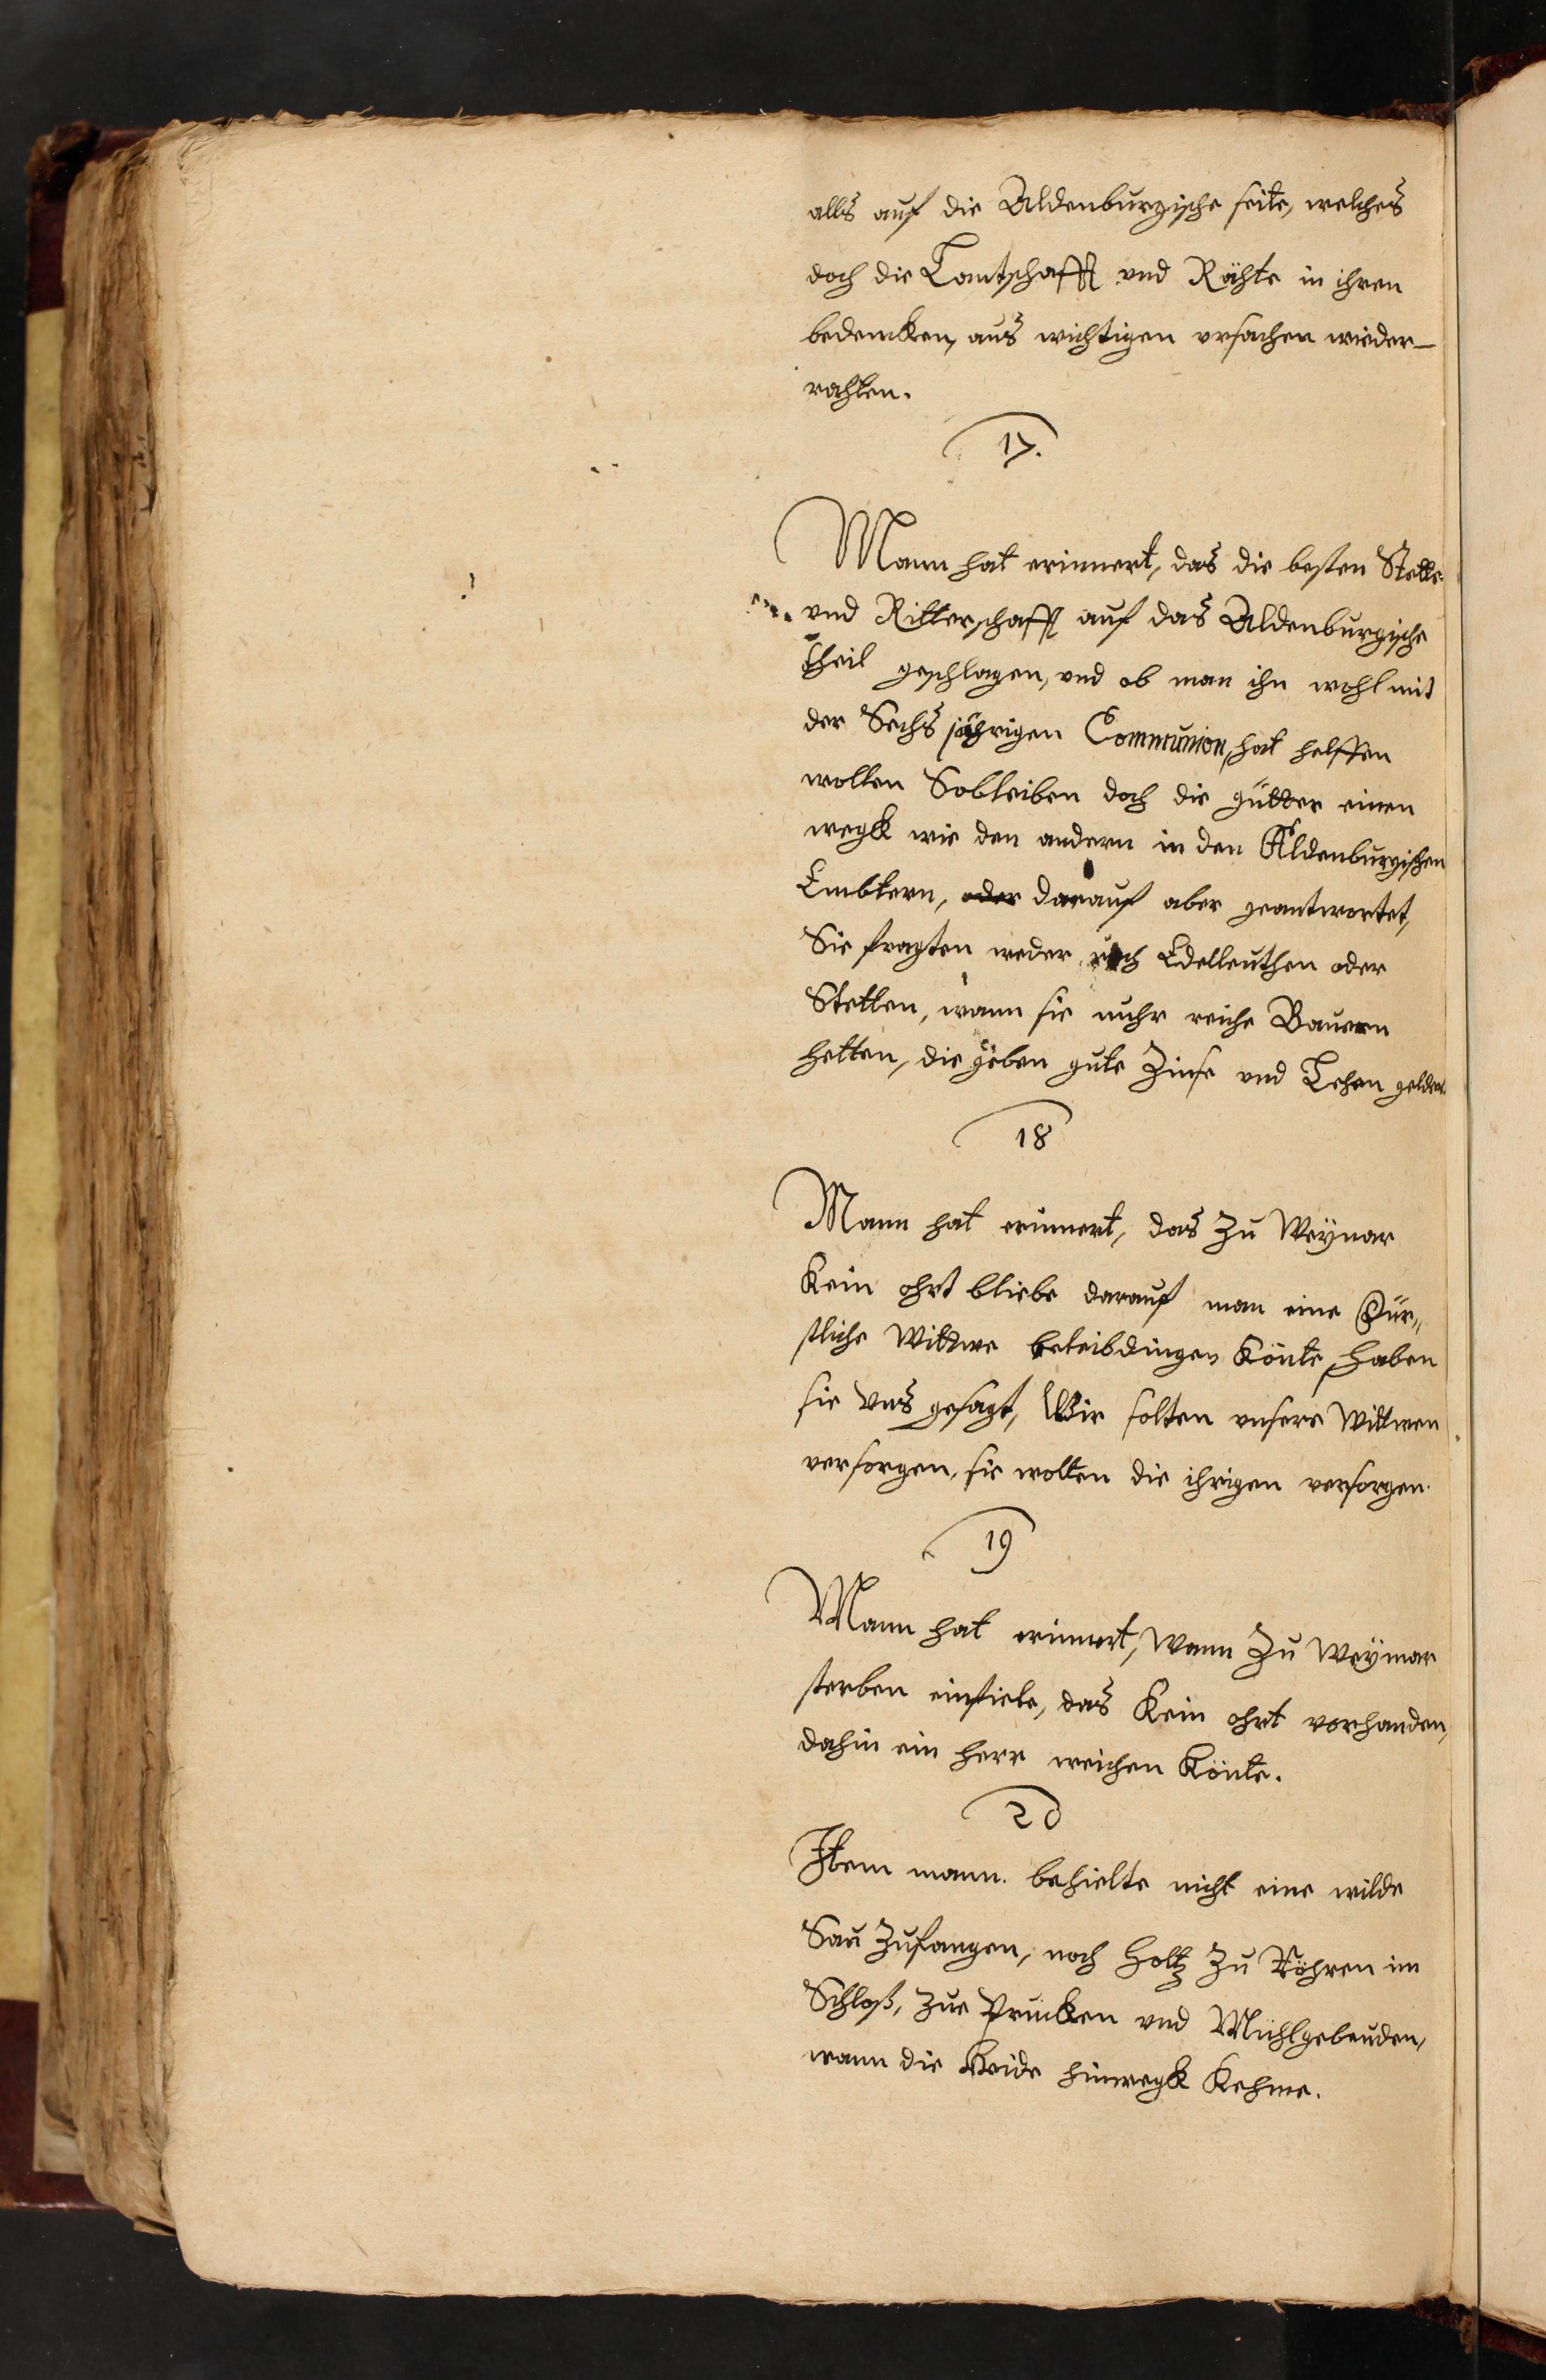 alls auf die Aldenburgische seite, welches
doch die Lantschafft vnd Rähte in ihren
bedencken, aus wichtigen vrsachen wieder-
rahten.
17.
Mann hat erinnert, das die besten Stette
vnd Ritterschafft auf das Aldenburgische
theil geschlagen, vnd ob man ihn wohl mit
der Sechs jährigen Communion, hat helffen
wollen Sobleiben doch die gütter einen
wegk wie den andern in den Aldenburgischen
Embtern, oder darauf aber geantwortet,
Sie fragten weder nach Edelleuthen oder
Stetten, wann sie nuhr reiche Bauern
hetten, die geben gute Zinse vnd Lehen gelder.
18
Mann hat erinnert, das Zu Weÿnar
Kein ohrt bliebe darauf man eine Für„
stliche Wittwe beleibdingen Könte, haben
sie Vns gesagt, Wir solten vnsere Wittwen
versorgen, sie wolten die ihrigen versorgen.
19
Mann hat erinnert, Wann Zu Weÿmar
sterben einfiele, das Kein ohrt vorhanden,
dahin ein herr weichen Könte.
20
Item mann. behielte nicht eine wilde
Sau Zufangen, noch Holtz Zu Röhren im
Schloß, Zue Prucken vnd Mühlgebeuden,
wann die Heide hinwegk Kehme.